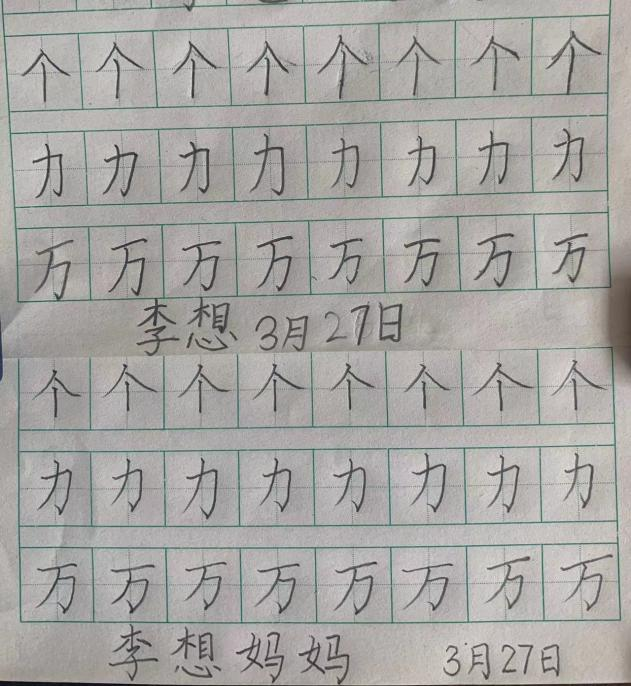 个个个个个个个个
力力力力力力力力
万万万万万万万万
李想 3月27日
个个个个个个个个
力力力力力力力力
万万万万万万万万
李想妈妈 3月27日